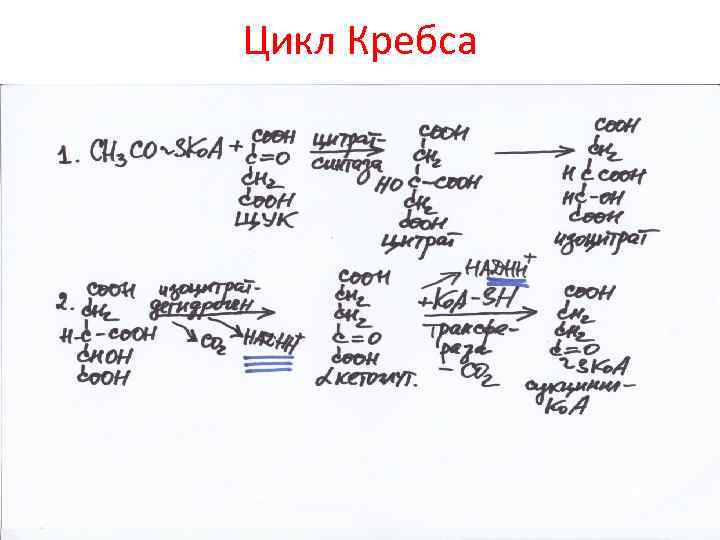 Цикл Кребса
1. CH3CO~SKoA + COOH цитрат- COOH COOH
C=O синтаза CH2 CH2
CH2 HO C-COOH H C COOH
COOH CH2 HC-OH
ЩУК COOH COOH
цитрат изоцитрат
НАДНН+
2. COOH изоцитрат- COOH +KoA-SH COOH
CH2 дегидроген CH2 CH2
H-C-COOH CO2 НАДНН+ CH2 трансфе- CH2
CHOH C=O раза C=O
COOH COOH - CO2 ~SKoA
αкетоглут. сукцинил-
KoA